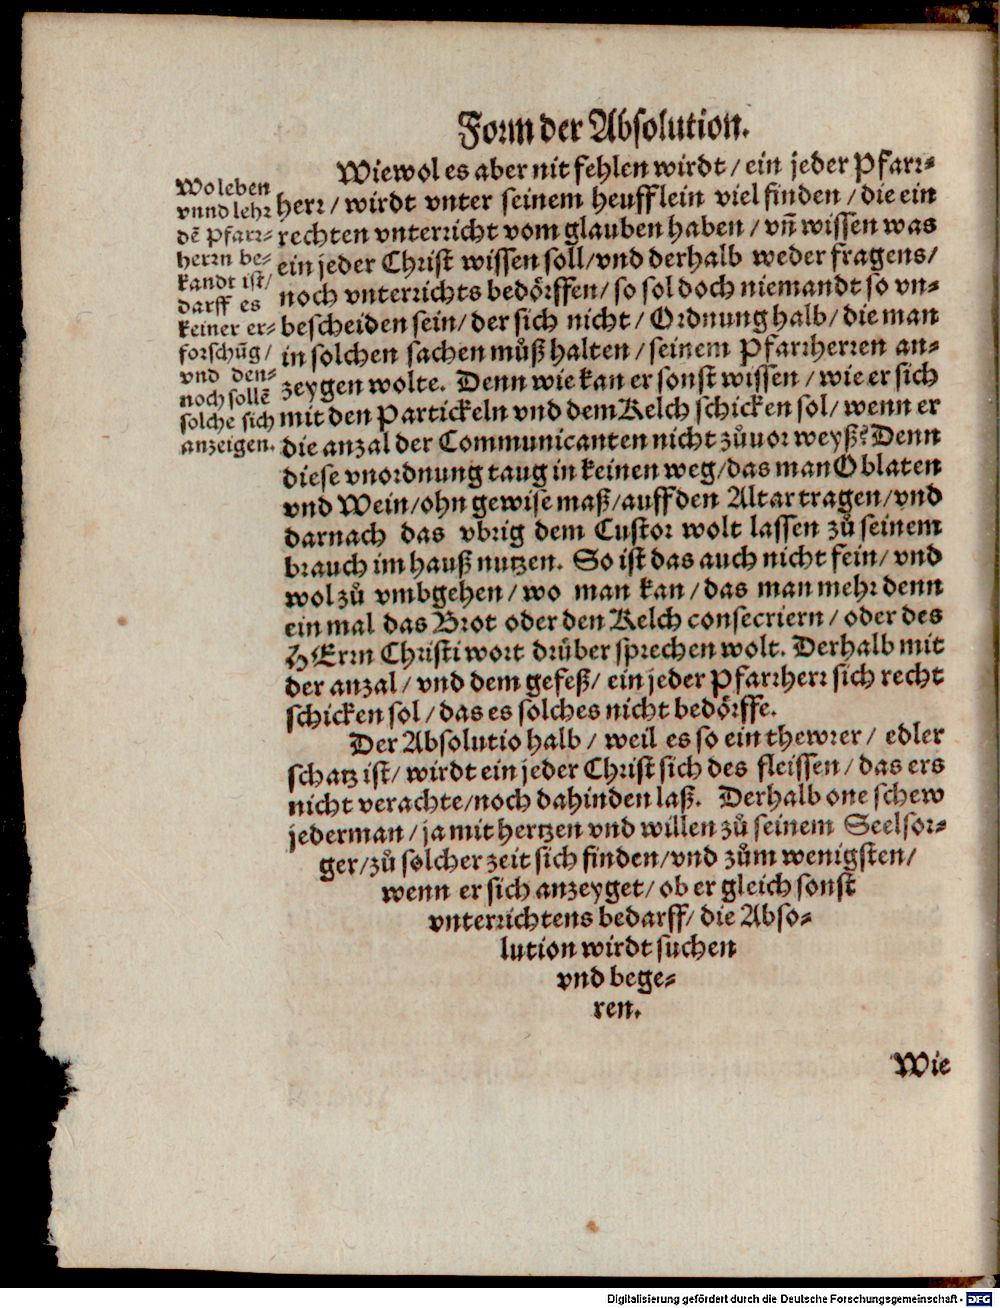 Form der Absolution.
Wo leben
vnnd lehr
dẽ Pfarr-
herrn be-
kandt ist/
darff es
keiner er-
forschũg/
vnd den-
noch sollẽ
solche sich
anzeigen.
Wiewol es aber nit fehlen wirdt / ein jeder Pfarr-
herr / wirdt vnter seinem heufflein viel finden / die ein
rechten vnterricht vom glauben haben / vñ wissen was
ein jeder Christ wissen soll/vnd derhalb weder fragens/
noch vnterrichts bedoͤrffen/ so sol doch niemandt so vn-
bescheiden sein/ der sich nicht / Ordnung halb/ die man
in solchen sachen muͦß halten / seinem Pfarrherren an-
zeygen wolte. Denn wie kan er sonst wissen / wie er sich
mit den Partickeln vnd dem Kelch schicken sol/ wenn er
die anzal der Communicanten nicht zuͦuor weyß? Denn
diese vnordnung taug in keinen weg/das man Oblaten
vnd Wein/ohn gewise maß/auff den Altar tragen/vnd
darnach das vbrig dem Custor wolt lassen zuͦ seinem
brauch im hauß nutzen. So ist das auch nicht fein/ vnd
wol zuͦ vmbgehen/ wo man kan / das man mehr denn
ein mal das Brot oder den Kelch consecriern / oder des
HErrn Christi wort druͤber sprechen wolt. Derhalb mit
der anzal / vnd dem gefeß/ ein jeder Pfarrherr sich recht
schicken sol / das es solches nicht bedoͤrffe.
Der Absolutio halb / weil es so ein thewrer / edler
schatz ist/ wirdt ein jeder Christ sich des fleissen / das ers
nicht verachte/noch dahinden laß. Derhalb one schew
jederman / ja mit hertzen vnd willen zuͦ seinem Seelsor-
ger/zuͦ solcher zeit sich finden/vnd zuͦm wenigsten/
wenn er sich anzeyget/ ob er gleich sonst
vnterrichtens bedarff/ die Abso-
lution wirdt suchen
vnd bege-
ren.
Wie
Digitalisierung gefördert durch die Deutsche Forschungsgemeinschaft - DFG